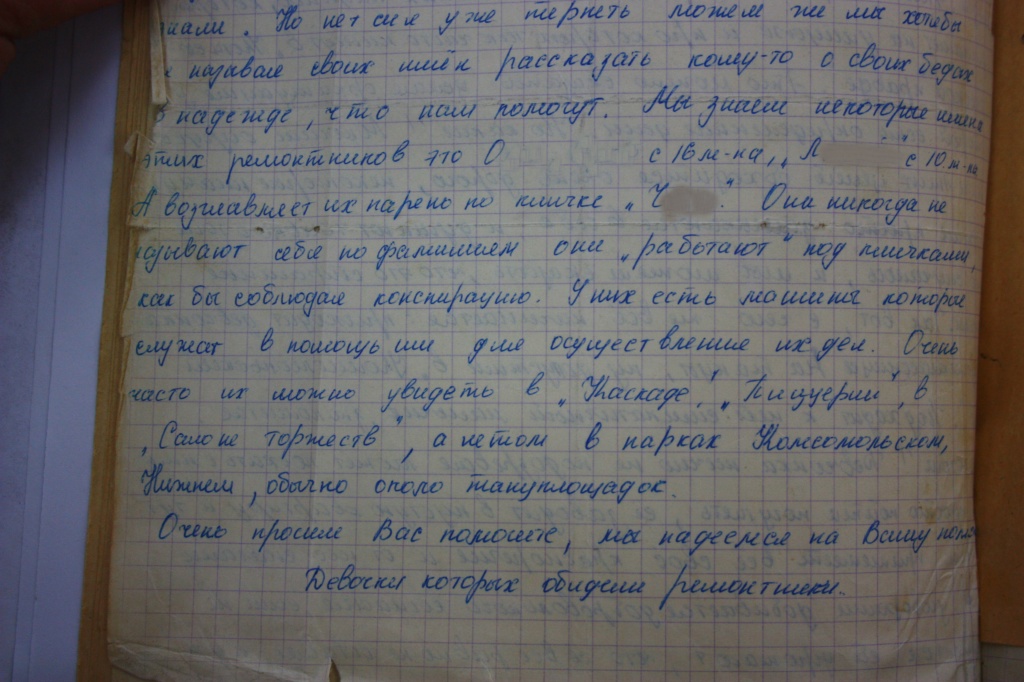 Но нет сил уже терпеть можем же мы хотябы
называя своих имён рассказать кому-то о своих бедах
надежде, что нам помогут. Мы знаем некоторые имена
этих ремонтников это О с 16 м-на, „Л " с 10. м-на
А возглавляет их парень по кличке „Ч ". Они никогда не
называют себя по фамилиям они „работают" под кличками,
как бы соблюдая конспирацию. У них есть машины которые
служат в помощь им для осуществления их дел. Очень
часто их можно увидеть в „Каскаде", „Пицерии", в
„Салоне торжеств", а летом в парках Комсомольском,
Нижнем, обычно около танцплощадок.
Очень просим Вас помогите, мы надеемся на Вашу
Девочки которых обидели ремонтники..